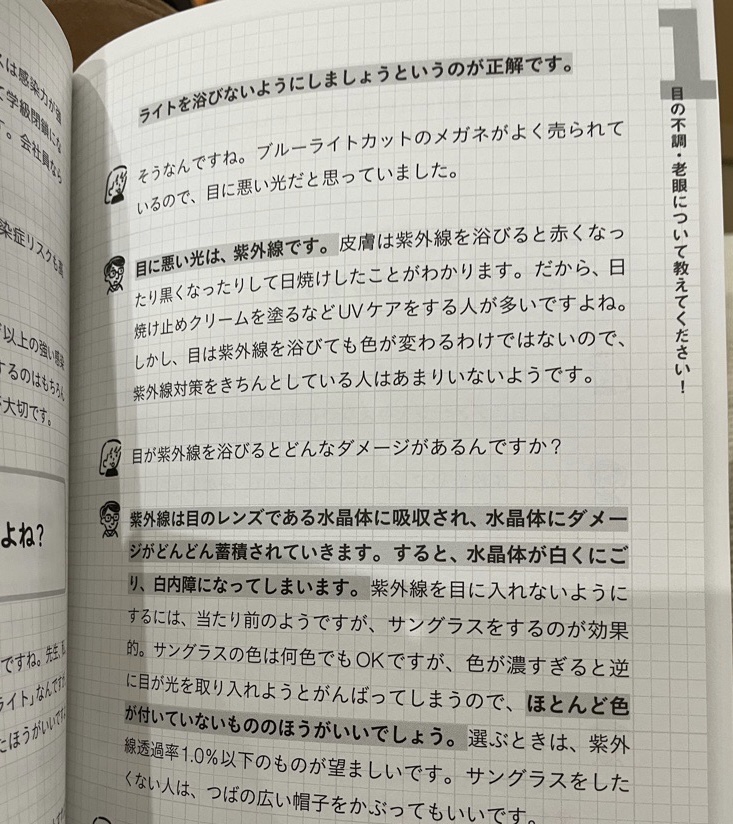 ライトを浴びないようにしましょうというのが正解です。
そうなんですね。ブルーライトカットのメガネがよく売られて
いるので、目に悪い光だと思っていました。
目に悪い光は、紫外線です。皮膚は紫外線を浴びると赤くなっ
たり黒くなったりして日焼けしたことがわかります。だから、日
焼け止めクリームを塗るなどUVケアをする人が多いですよね。
しかし、目は紫外線を浴びても色が変わるわけではないので、
紫外線対策をきちんとしている人はあまりいないようです。
目が紫外線を浴びるとどんなダメージがあるんですか？
紫外線は目のレンズである水晶体に吸収され、水晶体にダメー
ジがどんどん蓄積されていきます。すると、水晶体が白くにご
り、白内障になってしまいます。紫外線を目に入れないように
するには、当たり前のようですが、サングラスをするのが効果
的。サングラスの色は何色でもOKですが、色が濃すぎると逆
に目が光を取り入れようとがんばってしまうので、ほとんど色
が付いていないもののほうがいいでしょう。選ぶときは、紫外
線透過率1.0%以下のものが望ましいです。サングラスをした
くない人は、つばの広い帽子をかぶってもいいです。
1
目の不調・老眼について教えてください！
スは感染力が強
て学級閉鎖にな
す。会社員なら
染症リスクも高
以上の強い感染
するのはもちろん
大切です。
よね？
ですね。先生、
ライト」なんですか
にほうがいいです